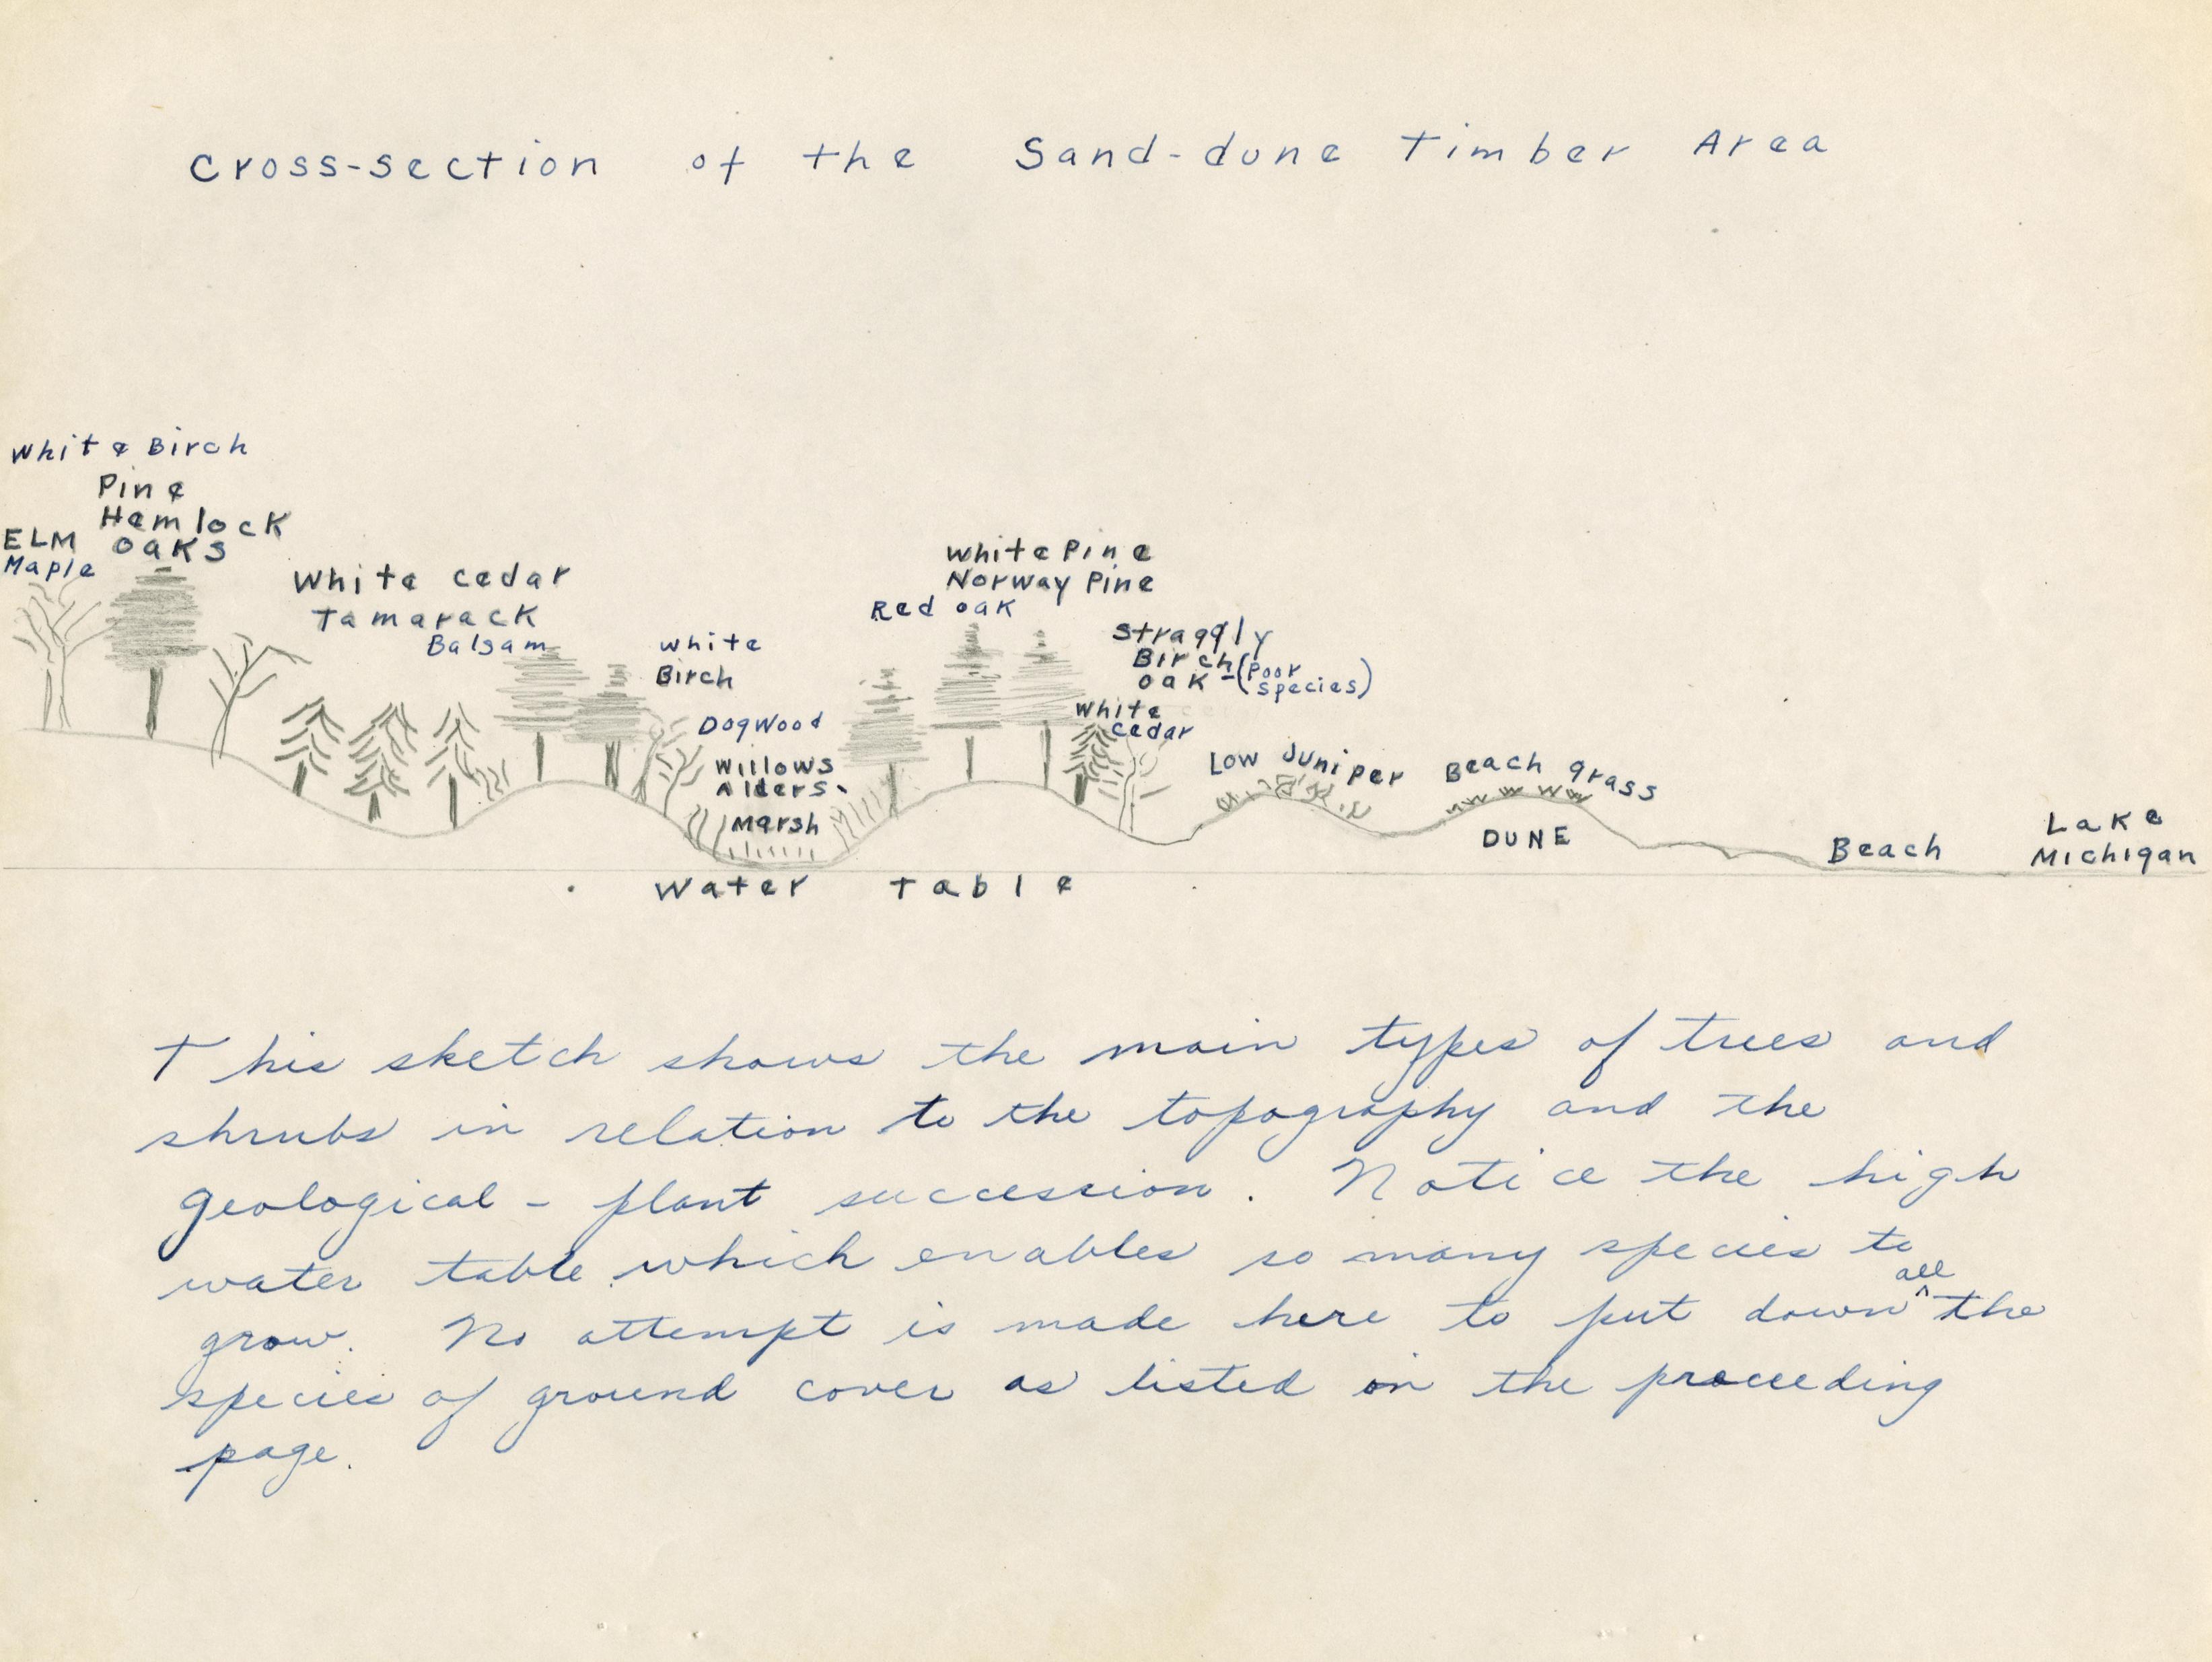 Cross-section of the Sand-dune Timber Area
White Birch
Pine
Hemlock
ELM Oaks
Maple
White cedar
Tamarack
Balsam
White
Birch
Dogwood
Willows
Alders
Marsh
White Pine
Norway Pine
Red oak
Straggly
Birch
oak - (Poor species)
White
cedar
Low Juniper
Beach grass
DUNE
Beach
Lake
Michigan
Water Table
This sketch shows the main types of trees and
shrubs in relation to the topography and the
geological - plant succession. Notice the high
water table which enables so many species to
grow. No attempt is made here to put down all the
species of ground cover as listed on the proceeding
page.